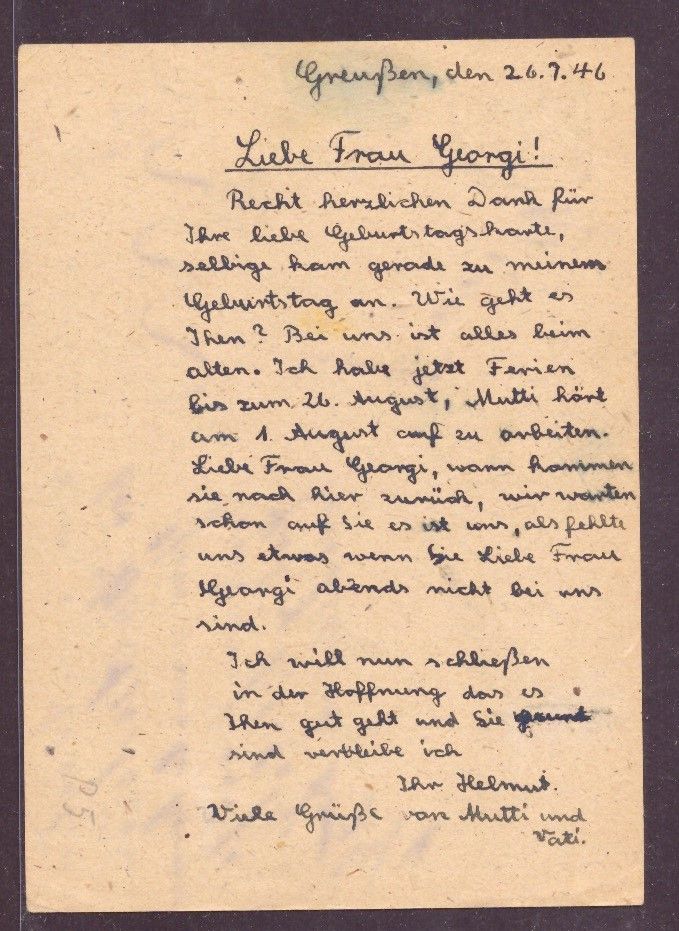 Greußen, den 26.7.46
Liebe Frau Georgi!
Recht herzlichen Dank für
Ihre liebe Geburtstagskarte,
selbige kam gerade zu meinem
Geburtstag an. Wie geht es
Ihen? Bei uns ist alles beim
alten. Ich habe jetzt Ferien
bis zum 26. August, Mutti hört
am 1. August auf zu arbeiten.
Liebe Frau Georgi, wann kommen
sie nach hier zurück, wir warten
schon auf Sie es ist uns, als fehlte
uns etwas wenn Sie Liebe Frau
Georgi abends nicht bei uns
sind.
Ich will nun schließen
in der Hoffnung das es
Ihen gut geht und Sie
sind verbleibe ich
Ihr Helmut.
Viele Grüße von Mutti und
Vati.